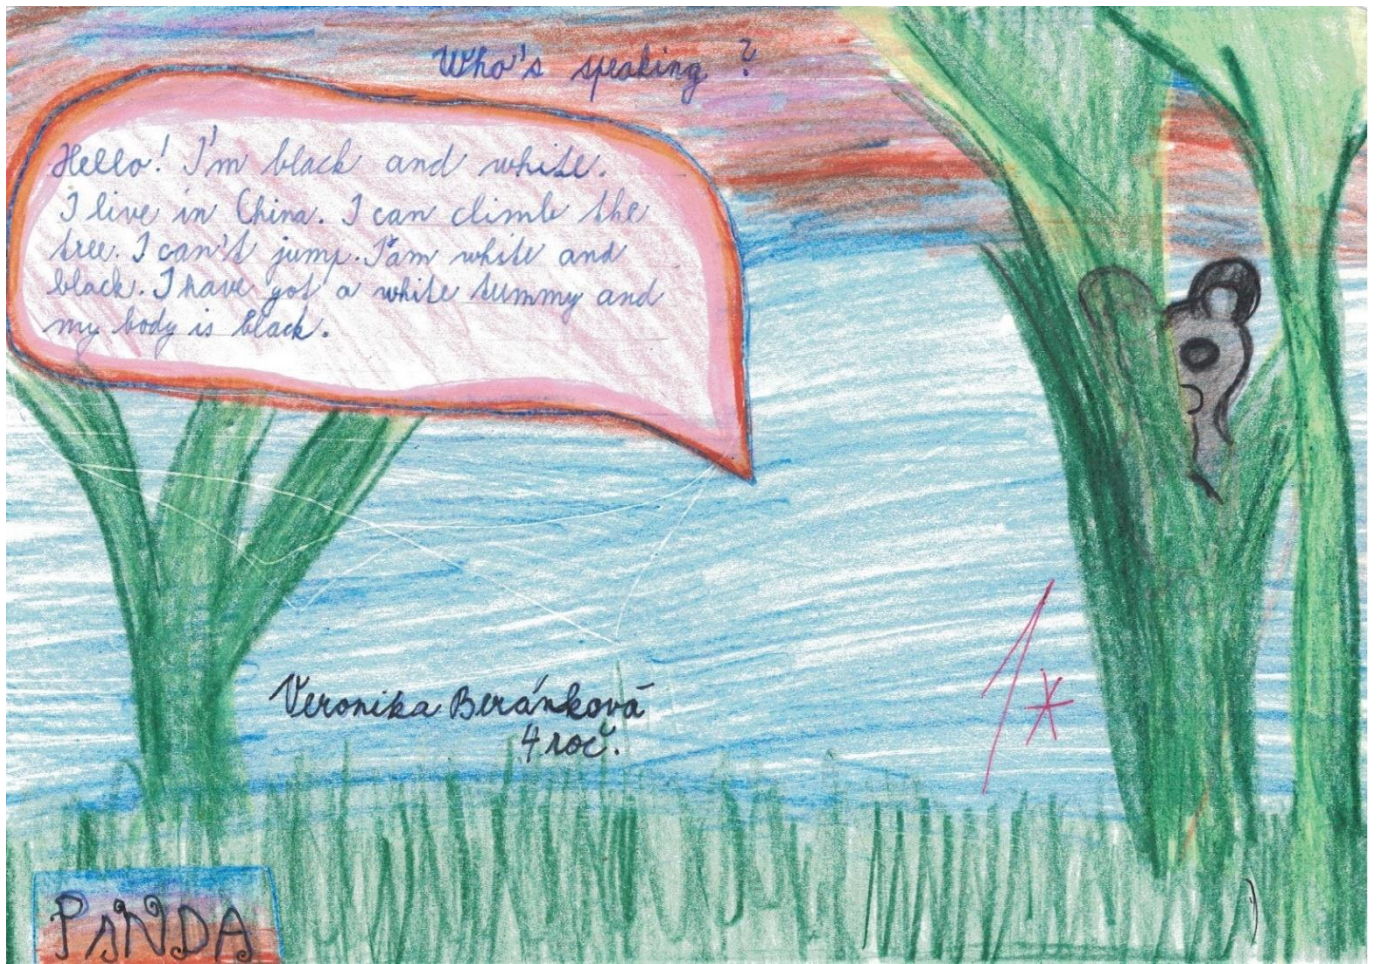 Who's speaking ?
Hello! I'm black and white.
I live in China. I can climb the
tree. I can't jump. I'am white and
black. I have got a white tummy and
my body is black.
Veronika Beránková
4 roč.
1*
PANDA